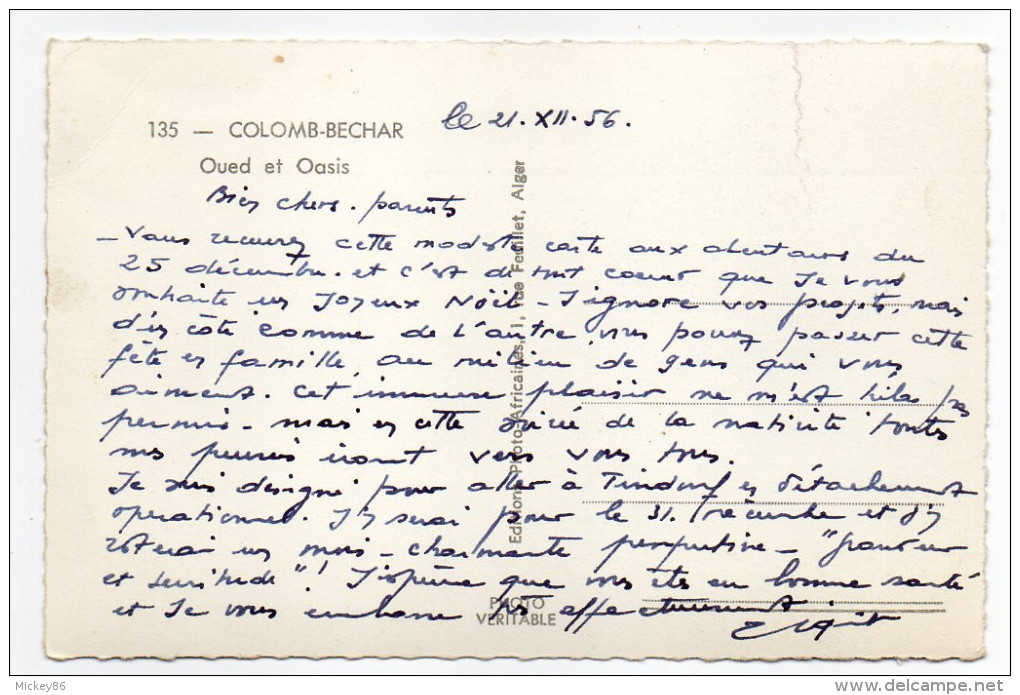 135 — COLOMB-BECHAR
Oued et Oasis
le 21.XII.56.
Bien chers parents
- Vous recevrez cette modeste carte aux alentours du
25 décembre. et c'est de tout coeur que Je vous
souhaite un Joyeux Noël - J'ignore vos projets, mais
d'un côté comme de l'autre, vous pouvez passer cette
fête en famille, au milieu de gens qui vous
aiment. Cet immense plaisir ne m'est hélas pas
permis - mais en cette soirée de la nativité toutes
mes pensées iront vers vous tous.
Je suis désigné pour aller à Tindouf en détachement
opérationnel. J'y serai pour le 31. décembre et J'y
resterai un mois - charmante perspective - "grandeur
et servitude"! J'espère que vous êtes en bonne santé
et Je vous embrasse affectueusement
Editions Photo-Africaines, 11, rue Feuillet, Alger
PHOTO
VÉRITABLE
Mickey86
www.delcampe.net